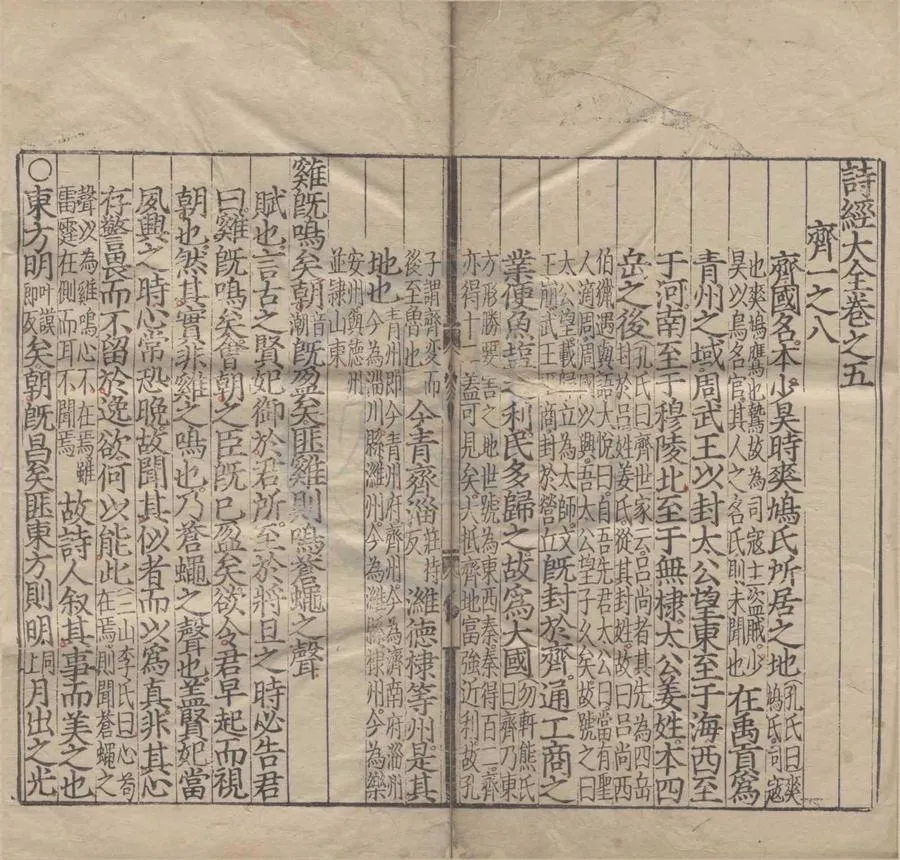 詩經大全卷之五
齊一之八
齊國名本少昊時爽鳩氏所居之地孔氏曰爽鳩氏司寇
也爽鳩鷹也鷙故為司寇主盜賊少昊以鳥名官其人之名氏則未聞也在禹貢為
青州之域周武王以封太公望東至于海西至
于河南至于穆陵北至于無棣太公姜姓本四
岳之後孔氏曰齊世家云呂尚者其先為四岳封於呂姓姜氏從其封姓故曰呂尚西
伯獵遇與語大悅曰自吾先君太公曰當有聖人適周周以興吾太公望子久矣故號之曰
太公望載與歸立為太師文王崩武王商封於營丘既封於齊通工商之
業便魚塩之利民多歸之故為大國勿軒熊氏曰齊乃東
方形勝要害之地世號為東西秦秦得百二齊亦得十蓋可見矣大抵齊地富強近利故孔
子謂齊變而後至魯也今青齊淄莊持反濰德棣等州是其
地也青州即今青州府齊州今為濟南府淄州今為淄川縣濰州今為濰縣棣州今為樂
安州與德州並隸山東
雞既鳴矣朝音潮既盈矣匪雞則鳴蒼蠅之聲
賦也言古之賢妃御於君所至於將旦之時必告君
曰雞既鳴矣會朝之臣既已盈矣欲令君早起而視
朝也然其實非雞之鳴也乃蒼蠅之聲也蓋賢妃當
夙興之時心常恐晚故聞其似者而以為真非其心
存警畏而不留於逸欲何以能此三山李氏曰心苟在焉則聞蒼蠅之
聲以為雞鳴心不在焉雖雷霆在側而耳不聞焉故詩人叙其事而美之也
○東方明叶謨郎反矣朝既昌矣匪東方則明同上月出之光